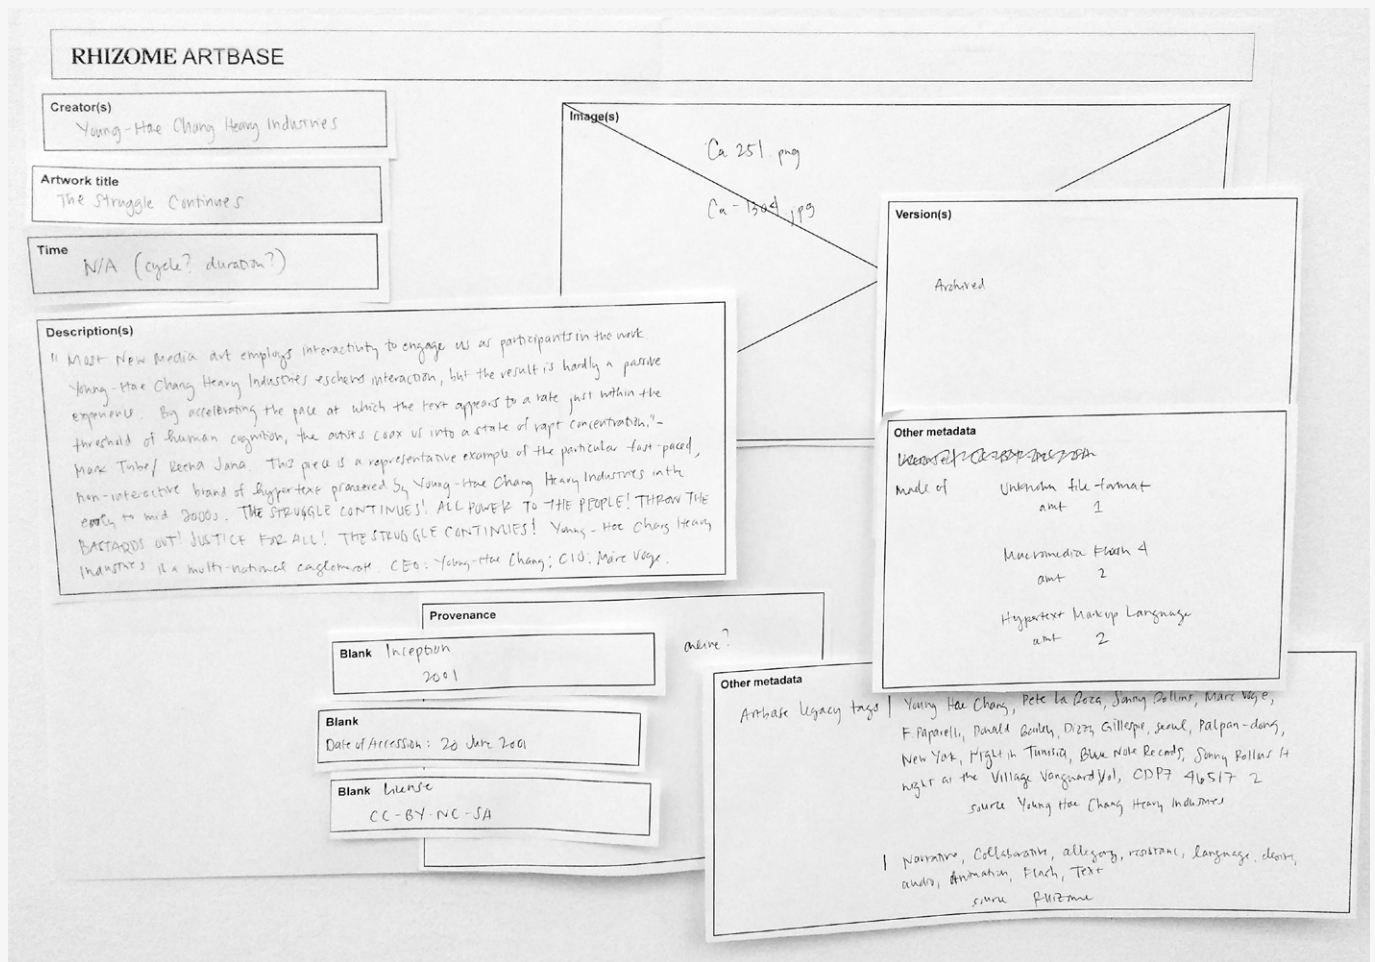 RHIZOME ARTBASE
Creator(s)
Young-Hae Chang Heavy Industries
Artwork title
The Struggle Continues
Time
N/A (cycle? duration?)
Image(s)
Ca 251.png
Ca-1304.jpg
Version(s)
Archived
Description(s)
"Most New Media art employs interactivity to engage us as participants in the work.
Young-Hae Chang Heavy Industries eschews interaction, but the result is hardly a passive
experience. By accelerating the pace at which the text appears to a rate just within the
threshold of human cognition, the artists coax us into a state of rapt concentration."-
Mark Tribe/ Reena Jana. This piece is a representative example of the particular fast-paced,
non-interactive brand of hypertext pioneered by Young-Hae Chang Heavy Industries in the
early to mid 2000s. THE STRUGGLE CONTINUES! ALL POWER TO THE PEOPLE! THROW THE
BASTARDS OUT! JUSTICE FOR ALL! THE STRUGGLE CONTINUES! Young-Hae Chang Heavy
Industries is a multi-national CEO: Young-Hae Chang; CIO: Marc Voge.
Other metadata
made of Unknown file format
amt 1
Macromedia Flash 4
amt 2
Hypertext Markup Language
amt 2
Provenance
online?
Blank Inception
2001
Blank
Date of Accession: 20 June 2001
Blank License
CC-BY-NC-SA
Other metadata
Artbase legacy tags | Young Hae Chang, Pete La Roca, Sonny Rollins, Marc Voge,
F. Paparelli, Donald Bailey, Dizzy Gillespie, seoul, Palpan-dong,
New York, Night in Tunisia, Blue Note Records, Sonny Rollins A
night at the Village Vanguard Vol, CDP7 46517 2
source Young Hae Chang Heavy Industries
| Narrative, Collaborative, allegory, resistance, language, desire,
audio, Animation, Flash, Text
source Rhizome